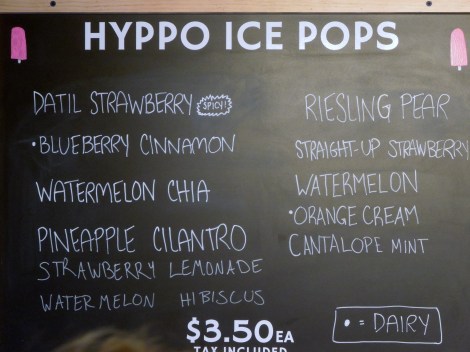 HYPPO ICE POPS
DATIL STRAWBERRY SPICY!
•BLUEBERRY CINNAMON
WATERMELON CHIA
PINEAPPLE CILANTRO
STRAWBERRY LEMONADE
WATERMELON HIBISCUS
RIESLING PEAR
STRAIGHT-UP STRAWBERRY
WATERMELON
•ORANGE CREAM
CANTALOPE MINT
$3.50 EA
TAX INCLUDED
• = DAIRY